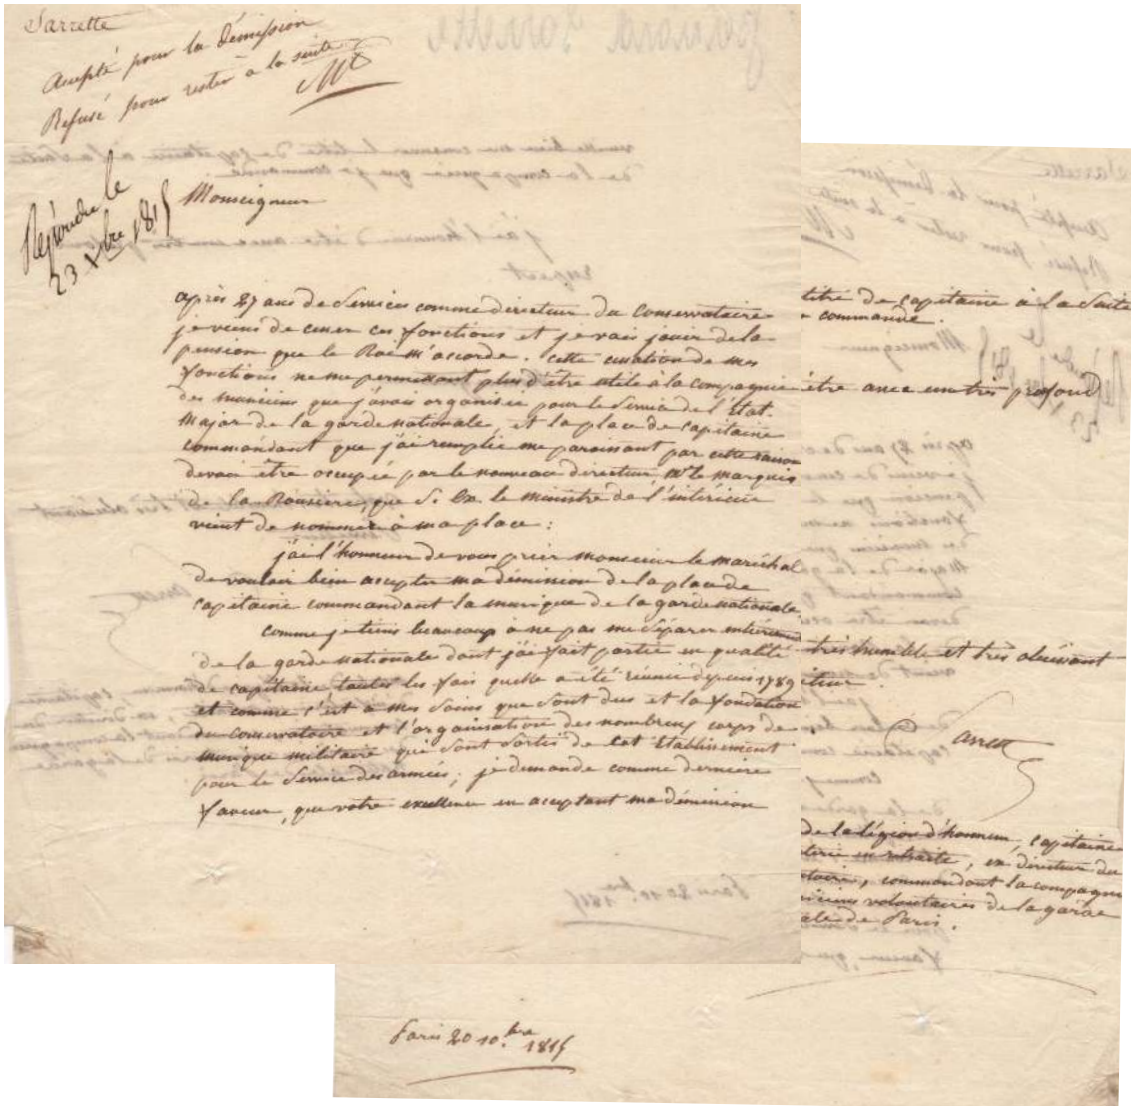 Sarrette
Accepté pour la démission
Refusé pour rester à la suite.
Répondu le
23 Xbre 1815
Monseigneur
après 27 ans de Services comme directeur du Conservatoire
je viens de cesser ces fonctions et je vais jouir de la
pension que le Roi m'accorde. cette cessation de mes
fonctions ne me permettant plus d'être utile à la compagnie
des musiciens que j'avais organisée pour le Service de l'État.
Major de la garde nationale, et la place de capitaine
commandant que j'ai remplie me paraissant par cette raison
devoir être occupée par le nouveau directeur, Mr. le marquis
de la Rousière, que S. Ex. le ministre de l'intérieur
vient de nommer à ma place :
j'ai l'honneur de vous prier monsieur le maréchal
de vouloir bien accepter ma démission de la place de
capitaine commandant la musique de la garde nationale.
comme je tiens beaucoup à ne pas me séparer
de la garde nationale dont j'ai fait partie en qualité
de capitaine, toutes les fois qu'elle a été réunie depuis 1789
et comme c'est à mes Soins que Sont dus et la fondation
du conservatoire et l'organisation des nombreux corps de
musique militaire qui Sont Sortis de cet Etablissement
pour le Service des armées ; je demande comme dernière
faveur, que votre excellence en acceptant ma démission
titre de capitaine à la Suite
commande.
être avec un très profond
très humble et très obéissant
Sarrette
de la légion d'honneur, capitaine
en retraite, ex directeur du
commandant la compagnie
volontaires de la garde
de Paris.
Paris 20 10.bre 1815